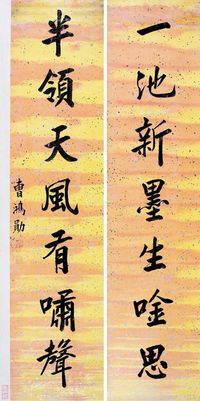 一池新墨生唫思
半領天風有嘯聲
曹鴻勛